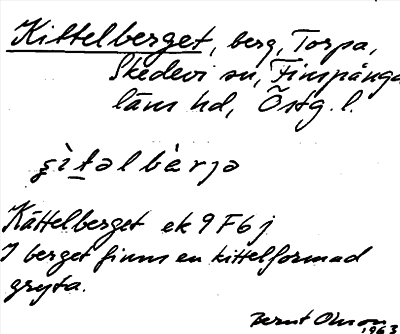 Kittelberget, berg, Torpa,
Skedevi sn, Finspånga
läns hd, Östg. l.
Kättelberget ek 9 F 6 j
I berget finns en kittelformad
gryta.
Bernt Olsson
1963